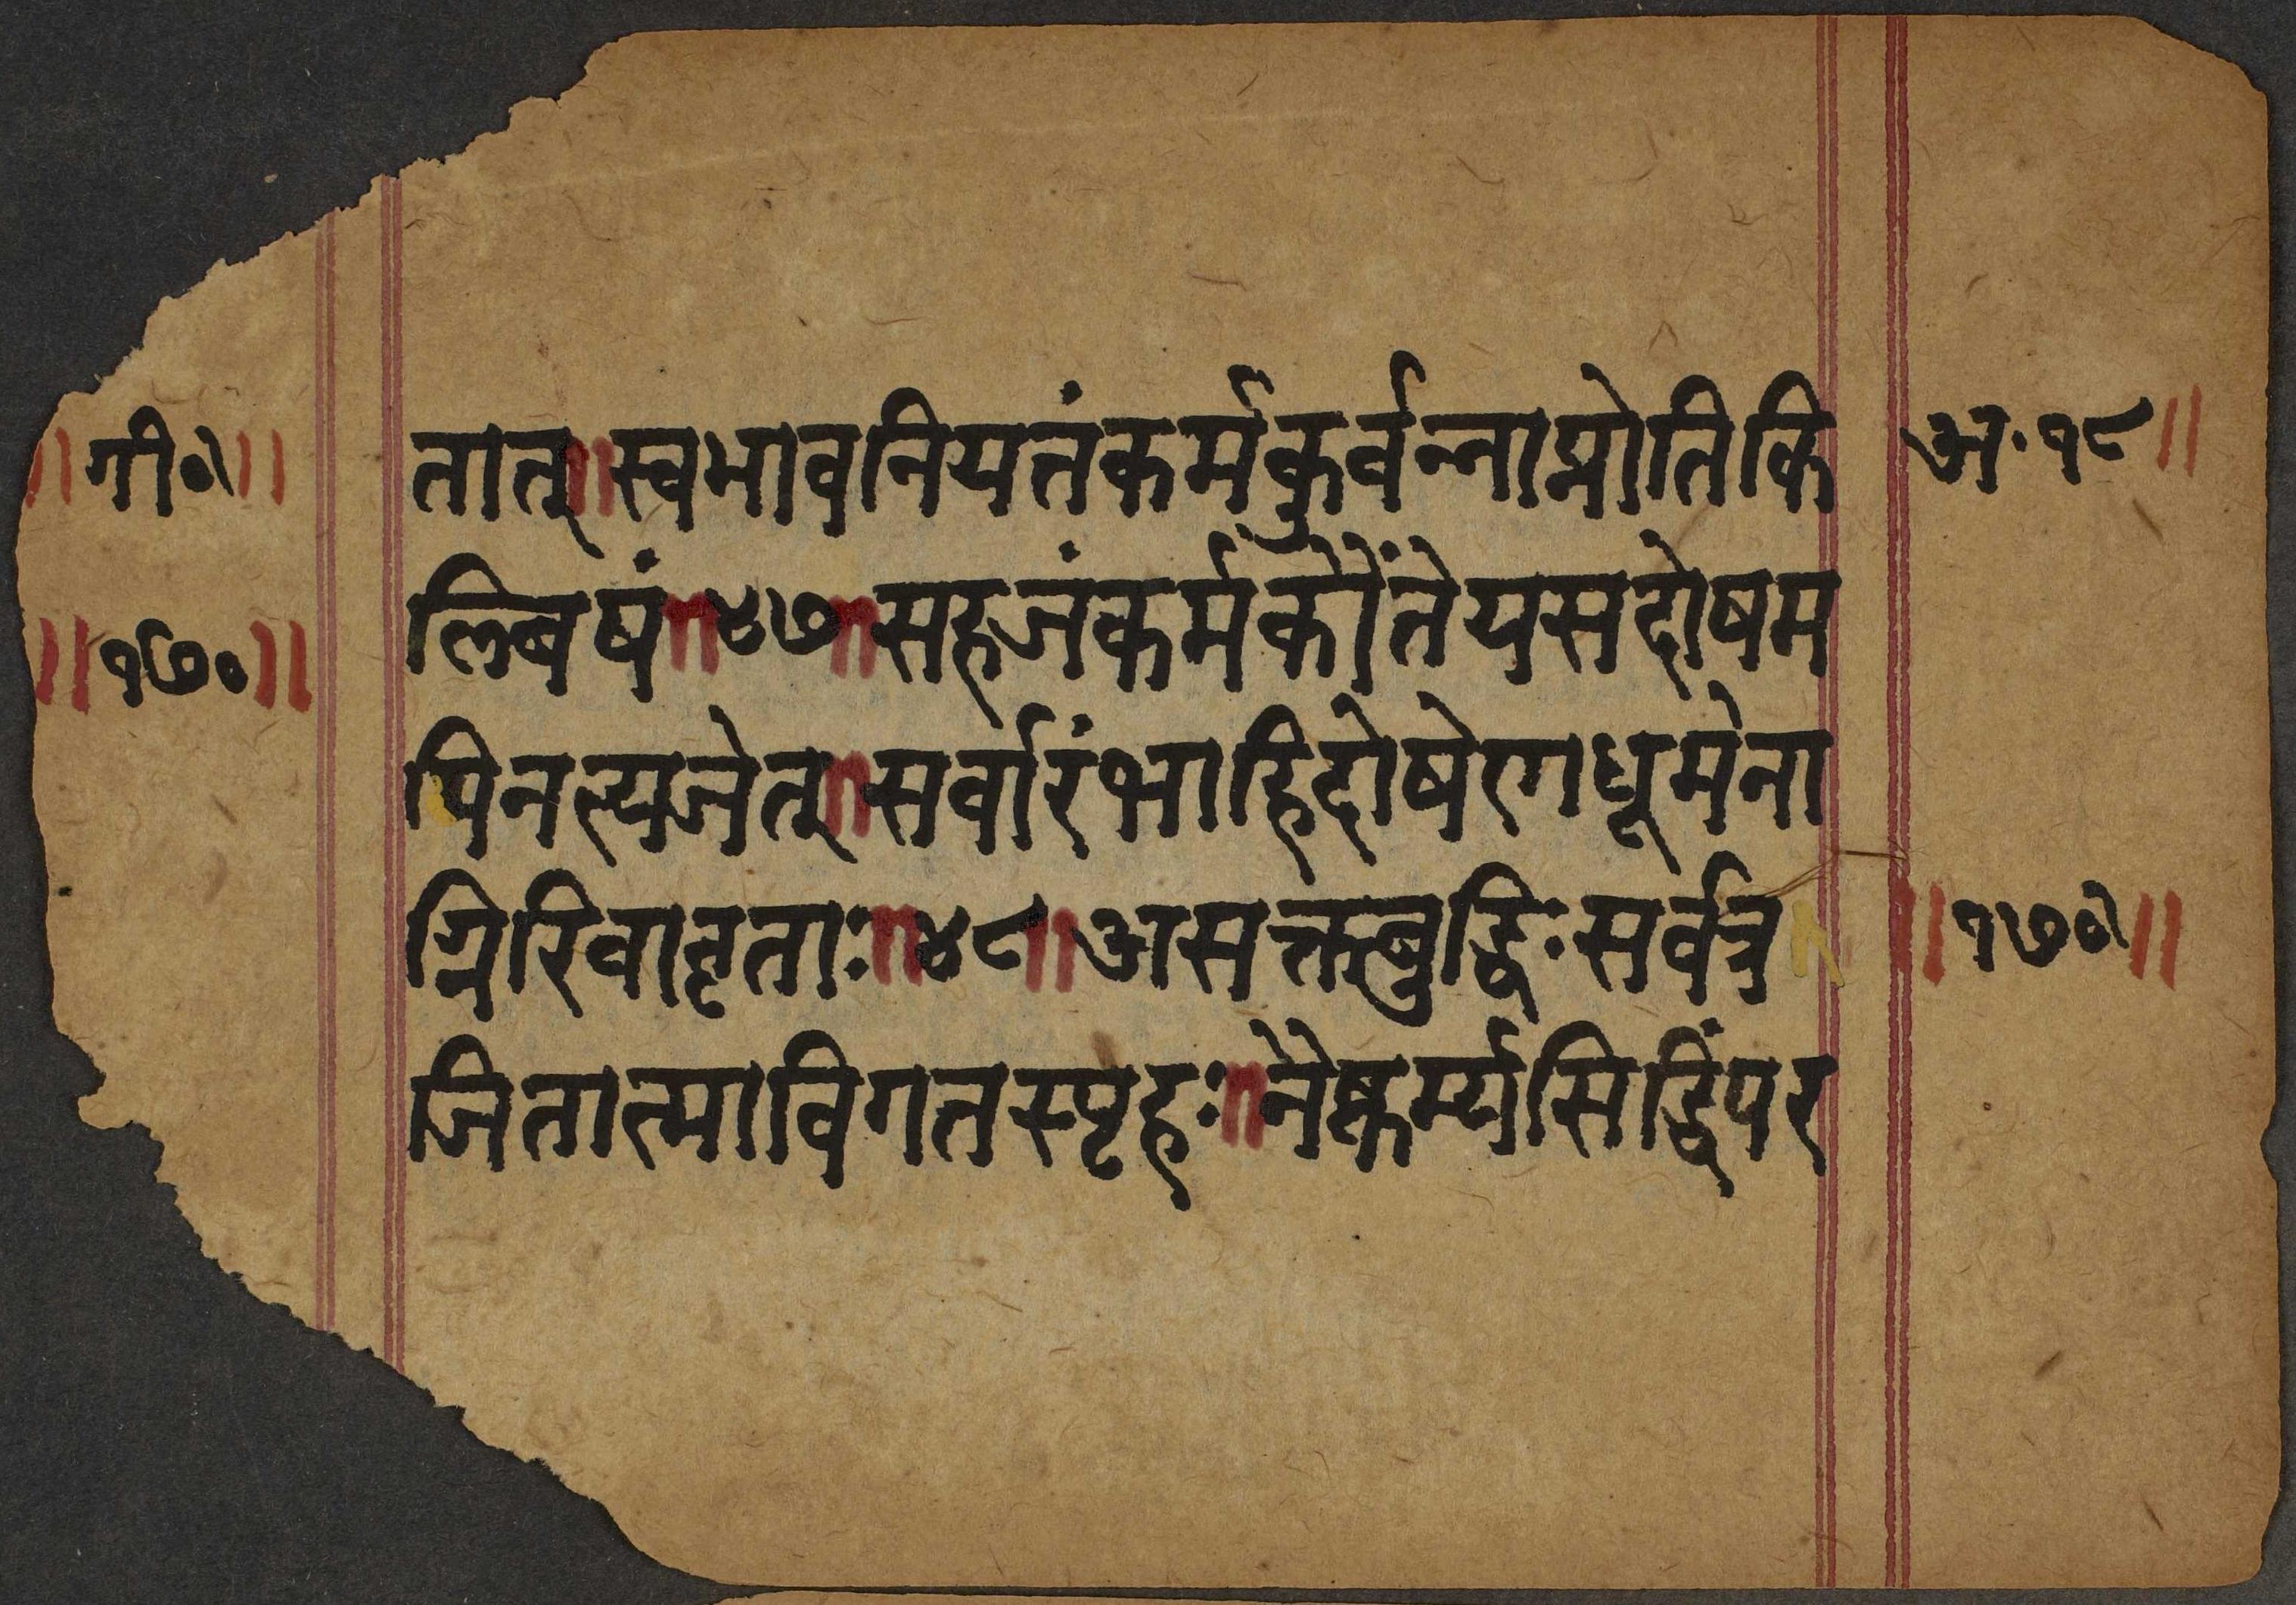 ॥गी०॥
॥१७०॥
तात्॥स्वभावनियतंकर्मकुर्वन्नाप्नोतिकि
ल्बिषं॥४७॥सहजंकर्मकौंतेयसदोषम
पिनत्यजेत्॥सर्वारंभाहिदोषेणधूमेना
ग्निरिवावृताः॥४८॥असक्तबुद्धिःसर्वत्र
जितात्माविगतस्पृहः॥नैष्कर्म्यसिद्धिंपर
अ.१८॥
॥१७०॥